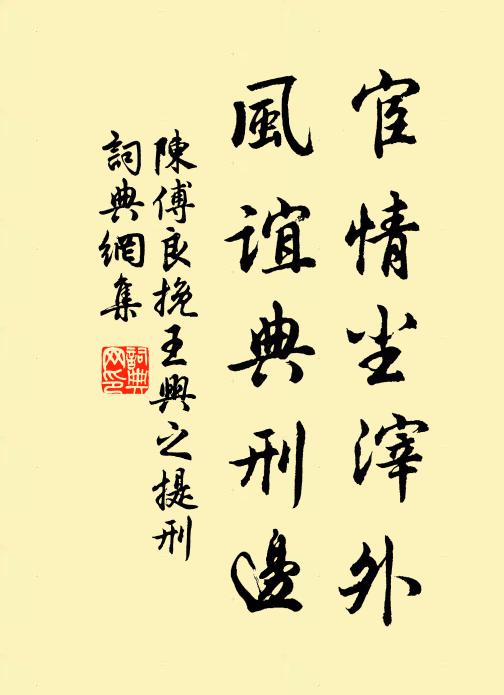 宦情尘滓外
風誼典刑邊
陳傅良挽王興之提刑
詞典網集
詞典网印